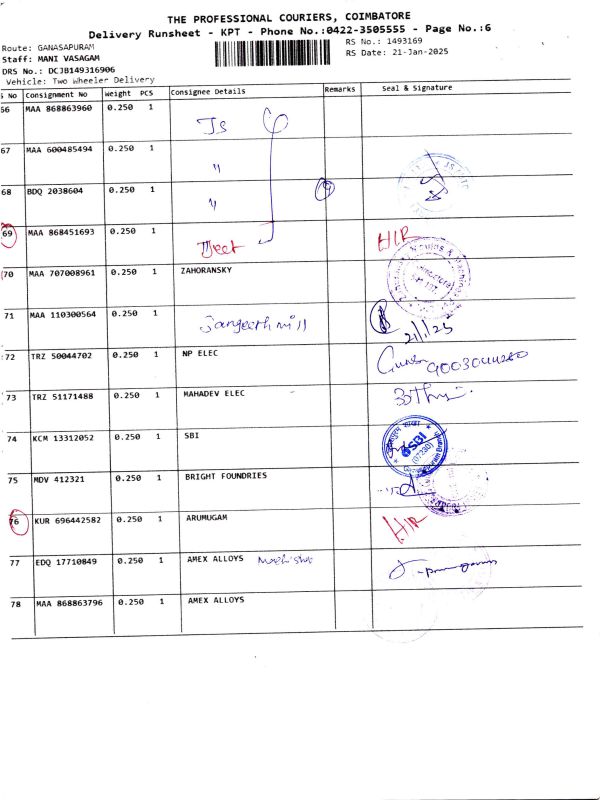 THE PROFESSIONAL COURIERS, COIMBATORE
Delivery Runsheet - KPT - Phone No.:0422-3505555 - Page No.:6
Route: GANASAPURAM
RS No.: 1493169
Staff: MANI VASAGAM
RS Date: 21-Jan-2025
DRS No.: DCJB149316906
Vehicle: Two Wheeler Delivery
No Consignment No Weight PCS Consignee Details Remarks Seal & Signature
66 MAA 868863960 0.250 1 Js
67 MAA 600485494 0.250 1 "
68 BDQ 2038604 0.250 1 "
69 MAA 868451693 0.250 1 HIR
70 MAA 707008961 0.250 1 ZAHORANSKY
71 MAA 110300564 0.250 1 Sangeeth mill 21/1/25
72 TRZ 50044702 0.250 1 NP ELEC
73 TRZ 51171488 0.250 1 MAHADEV ELEC
74 KCM 13312052 0.250 1 SBI SBI
75 MDV 412321 0.250 1 BRIGHT FOUNDRIES
76 KUR 696442582 0.250 1 ARUMUGAM HIR
77 EDQ 17710849 0.250 1 AMEX ALLOYS
78 MAA 868863796 0.250 1 AMEX ALLOYS